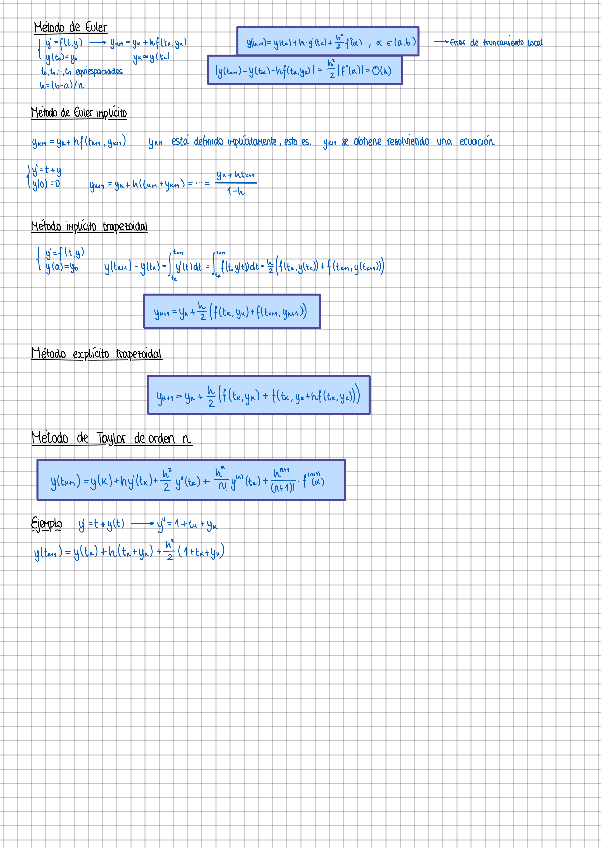 Método de Euler
{ y' = f(t,y) ⟶ y_{k+1} = y_k + hf(t_k, y_k)
y(t_0) = y_0 y_k ≈ y(t_k)
equiespaciados
h = (b-a)/n
y(t_{k+1}) = y(t_k) + h·y'(t_k) + h²/2 f'(α) , α ∈ (a,b) ⟶ Error de truncamiento local
|y(t_{k+1}) - y(t_k) - hf(t_k, y_k)| = h²/2 |f'(α)| = O(h)
Método de Euler implícito
y_{k+1} = y_k + hf(t_{k+1}, y_{k+1}) y_{k+1} está definido implícitamente, esto es, y_{k+1} se obtiene resolviendo una ecuación
{ y' = t + y
y(0) = 0 y_{k+1} = y_k + h(t_{k+1} + y_{k+1}) = ... = (y_k + ht_{k+1})/(1-h)
Método implícito trapezoidal
{ y' = f(t,y)
y(a) = y_0 y(t_{k+1}) - y(t_k) = ∫_{t_k}^{t_{k+1}} y'(t)dt = ∫_{t_k}^{t_{k+1}} f(t,y(t))dt = h/2 (f(t_k, y(t_k)) + f(t_{k+1}, y(t_{k+1})))
y_{k+1} = y_k + h/2 (f(t_k, y_k) + f(t_{k+1}, y_{k+1}))
Método explícito trapezoidal
y_{k+1} = y_k + h/2 (f(t_k, y_k) + f(t_k, y_k + hf(t_k, y_k)))
Método de Taylor de orden n
y(t_{k+1}) = y(k) + hy'(t_k) + h²/2 y''(t_k) + h^n/n! y^{(n)}(t_k) + h^{n+1}/(n+1)! · f^{(n+1)}(α)
Ejemplo y' = t + y(t) ⟶ y'' = 1 + t_k + y_k
y(t_{k+1}) = y(t_k) + h(t_k + y_k) + h²/2 (1 + t_k + y_k)